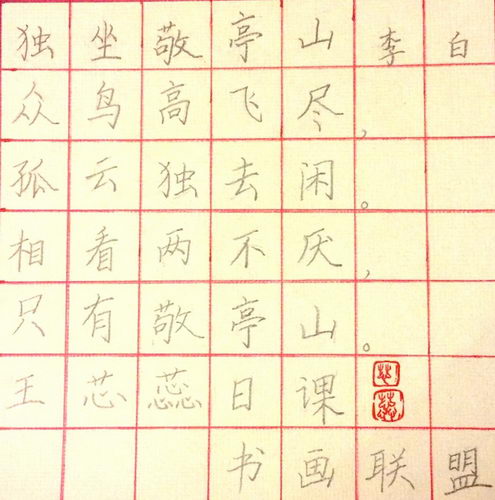 独坐敬亭山 李白
众鸟高飞尽，
孤云独去闲。
相看两不厌，
只有敬亭山。
王芯蕊日课
芯
蕊
书画联盟